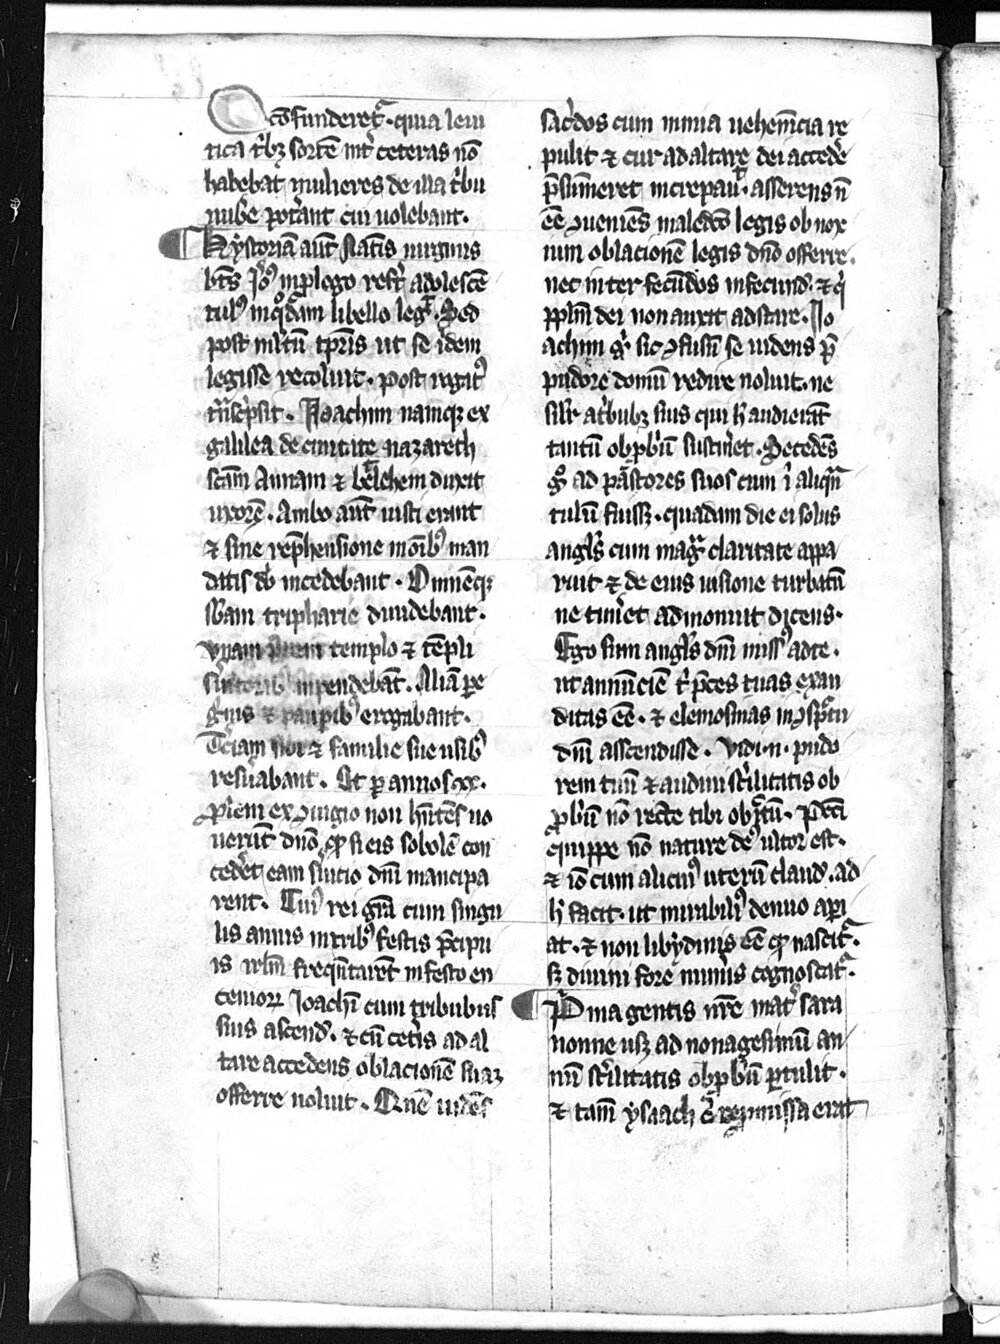 cōfunderet᷑ . quia leui
tica t'bꝫ sortē int' ceteras nō
habebat mulieres de illa t'bu
nub'e pot'ant cui uolebant .
hẏstoriā aūt natī́s uirginis
bt̄s Jo᷒ in p̱logo reft̄ adolescē
tul᷒ in q̄dam libello leg᷑ . Sed
post ml'tū tp̄ris ut se idem
legisse recoluit . post rogit᷒
tn̄sc'psit . Joachim namqꝫ ex
galilea de ciuitate nazareth
sc̄am Annam ex betlehem duxit
uxorē . Ambo aūt iusti erant
⁊ sine rep̄hensione in oīb᷒ man
datis dn̄i incedebant . Omnēqꝫ
sb̄am tripharie diuidebant .
vnam partem templo ⁊ tēpli
s'uitorib᷒ inpendebāt . Aliā pe
g'nis ⁊ paup̱ib᷒ erogabant .
T'ciam sibi ⁊ familie sue usib᷒
resūabant . Et p̱ annos xx .
p̱lem ex ꝯiugio non hn̄tes uo
uerūt dn̄o ꝙ si eis sobolē con
cedēt eam s'uicio dn̄i mancipa
rent . Cui᷒ rei grā cum singu
lis annis in trib᷒ festis p̄cipu
is irl'm freqn̄tarēt in festo en
ceniorꝝ Joachī cum tribubus
suis ascend' . ⁊ cū cet'is ad al
tare accedens oblacionē suaꝫ
offerre uoluit . Quē uidēs
sac'dos cum nimia uehemēcia re
pulit ⁊ cur ad altare dei accede'
p̄sumeret increpauit . asserens n̄
eē ꝯueniēs maled'co legis obnox
ium oblacionē legis dn̄o offerre .
nec inter fecūdos infecund' . ⁊ q̄
pp̱lm̄ dei non auxit adstare . Jo
achim g' sic ꝯfusū se uidens p̄
pudore domū redire noluit . ne
sil'r a t'bubꝫ suis qui h̄ audierāt
tantū obp̱b'ū sustin'et . Secedēs
g° ad pastores suos cum ī aliqn̄
tulū fuissꝫ . quadam die ei solus
angl's cum mag᷑ claritate appa
ruit ⁊ de eius uisione turbatū
ne tim'et admonuit dicens .
Ego sum angl's dn̄i miss᷒ ad te .
ut annūciē t' p̄ces tuas exau
ditas eē . ⁊ elemosinas in ꝯsp̄tu
dn̄i asscendisse . Vidi . n . pudo
rem tuū ⁊ audiui st'ilitatis ob
p̱b'ū nō recte tibi obi'tū . Pecc̄i
quippe nō nature de᷒ ultor est .
⁊ iō cum alicui᷒ uterū claud' . ad
h̄ facit . ut mirabili᷒ denuo api
at . ⁊ non libẏdinis eē ꝙ nascit᷑ .
sꝫ diuini fore mun'is cognoscat᷑ .
P'ma gentis nr̄e mat' sara
nonne usqꝫ ad nonagesimū an
nū st'ilitatis obp̱b'ū p̱tulit .
⁊ tam̄ ysaach g̱n'e rep̱missa erat